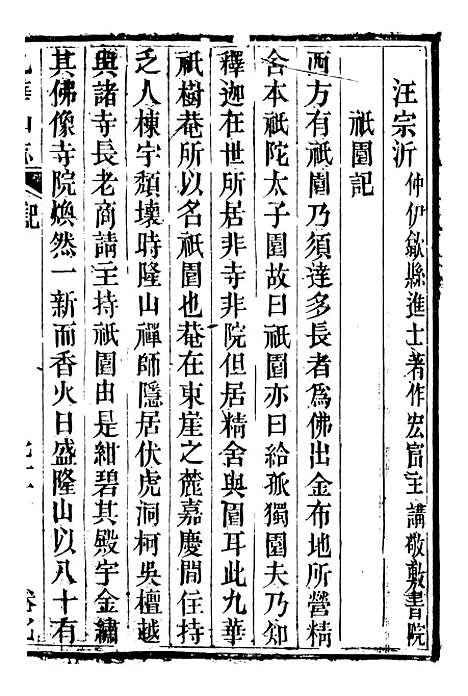 汪宗沂仲伊歙縣進士著作宏富主講敬敷書院
祇園記
西方有祇園乃須達多長者爲佛出金布地所營精
舍本祇陀太子園故曰祇園亦曰給孤獨園夫乃知
釋迦在世所居非寺非院但居精舍與園耳此九華
祇樹菴所以名祇園也菴在東崖之麓嘉慶間住持
乏人棟宇頹壞時隆山禪師隱居伏虎洞柯吳檀越
與諸寺長老商請主持祇園由是紺碧其殿宇金繡
其佛像寺院煥然一新而香火日盛隆山以八十有
九華山志
記
卷九